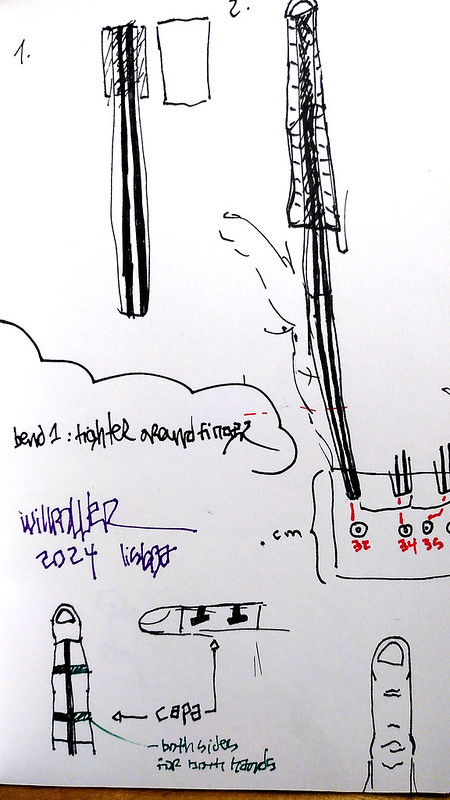 1.
2.
bend 1: tighter around finger
2024 lisboa
.cm
32 34 35
capa
- both sides
for both hands